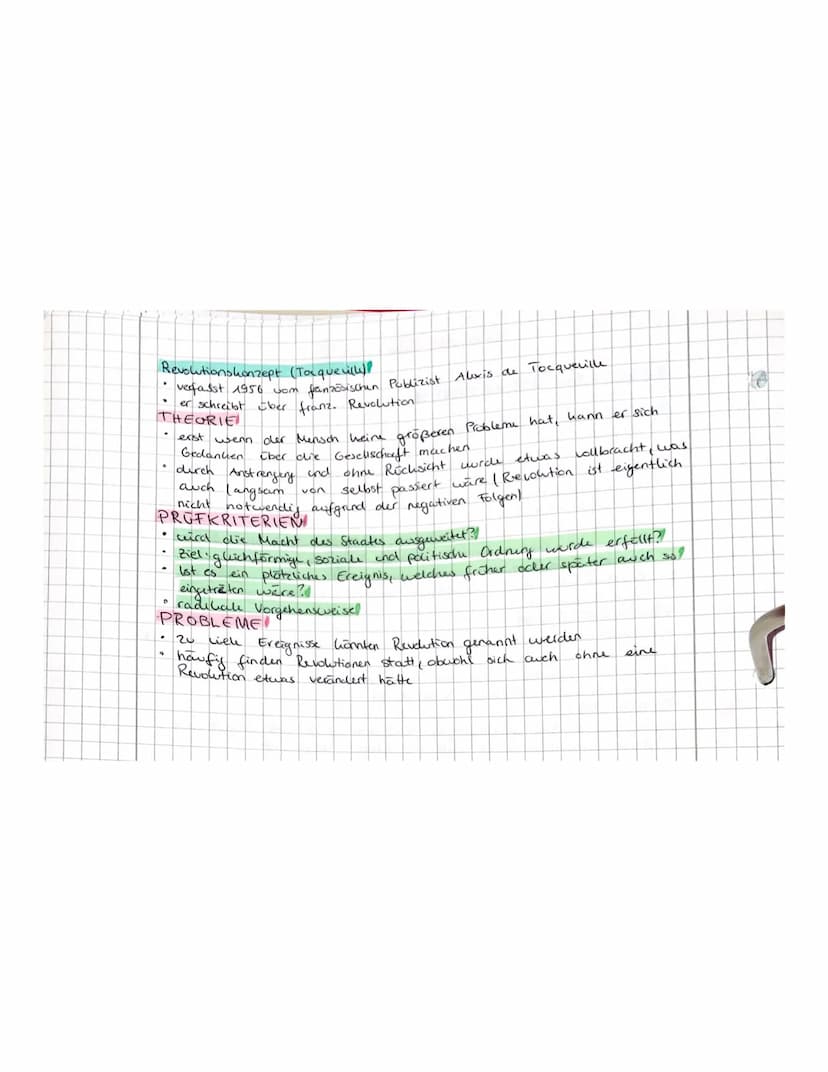 Revolutionskonzept (Tocqueville)
• verfasst 1956 vom französischen Publizist Alexis de Tocqueville
• er schreibt über franz. Revolution
THEORIE
• erst wenn der Mensch keine größeren Probleme hat, kann er sich
Gedanken über die Gesellschaft machen
• durch Anstrengung und ohne Rücksicht wurde etwas vollbracht, was
auch langsam von selbst passiert wäre (Revolution ist eigentlich
nicht notwendig aufgrund der negativen Folgen)
PRÜFKRITERIEN
• wird die Macht des Staates ausgeweitet?
• Ziel: gleichförmige, soziale und politische Ordnung wurde erfüllt?
• Ist es ein plötzliches Ereignis, welches früher oder später auch so
eingetreten wäre?
• radikale Vorgehensweise
PROBLEME
• zu viele Ereignisse könnten Revolution genannt werden
• häufig finden Revolutionen statt, obwohl sich auch ohne eine
Revolution etwas verändert hätte